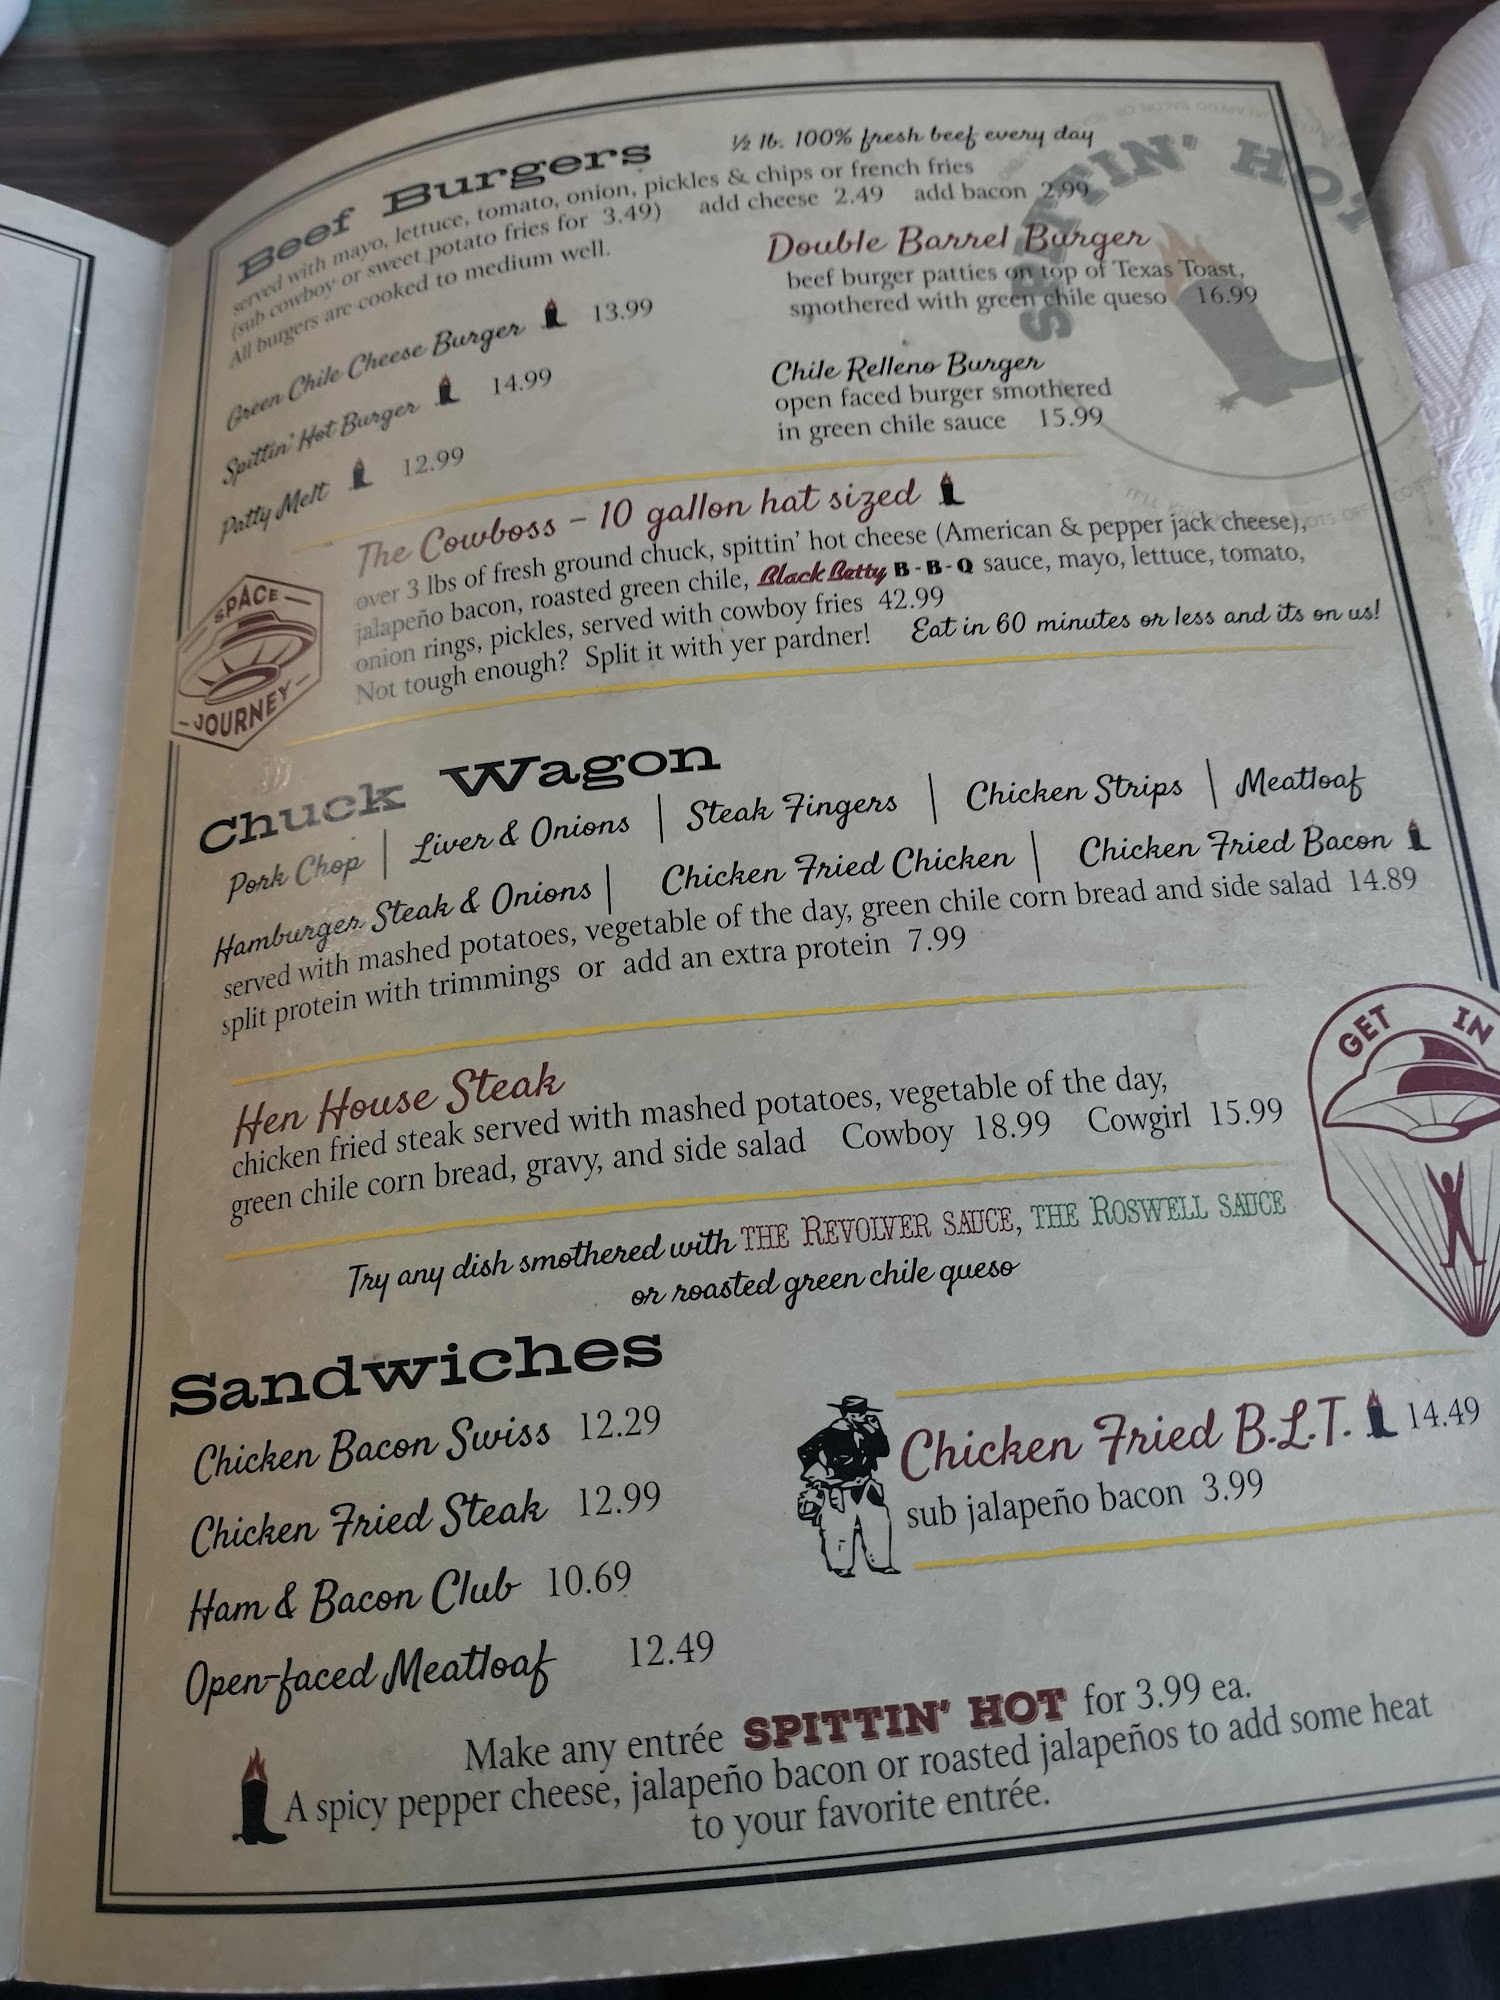 Beef Burgers
½ lb. 100% fresh beef every day
served with mayo, lettuce, tomato, onion, pickles & chips or french fries
(sub cowboy or sweet potato fries for 3.49) add cheese 2.49 add bacon 2.99
All burgers are cooked to medium well.
Green Chile Cheese Burger 13.99
Spittin' Hot Burger 14.99
Patty Melt 12.99
SPITTIN' HOT
Double Barrel Burger
beef burger patties on top of Texas Toast,
smothered with green chile queso 16.99
Chile Relleno Burger
open faced burger smothered
in green chile sauce 15.99
The Cowboss – 10 gallon hat sized
over 3 lbs of fresh ground chuck, spittin' hot cheese (American & pepper jack cheese),
jalapeño bacon, roasted green chile, Black Betty B-B-Q sauce, mayo, lettuce, tomato,
onion rings, pickles, served with cowboy fries 42.99
Not tough enough? Split it with yer pardner! Eat in 60 minutes or less and its on us!
SPACE
JOURNEY
Chuck Wagon
Pork Chop | Liver & Onions | Steak Fingers | Chicken Strips | Meatloaf
Hamburger Steak & Onions | Chicken Fried Chicken | Chicken Fried Bacon
served with mashed potatoes, vegetable of the day, green chile corn bread and side salad 14.89
split protein with trimmings or add an extra protein 7.99
GET IN
Hen House Steak
chicken fried steak served with mashed potatoes, vegetable of the day,
green chile corn bread, gravy, and side salad Cowboy 18.99 Cowgirl 15.99
Try any dish smothered with THE REVOLVER SAUCE, THE ROSWELL SAUCE
or roasted green chile queso
Sandwiches
Chicken Bacon Swiss 12.29
Chicken Fried Steak 12.99
Ham & Bacon Club 10.69
Open-faced Meatloaf 12.49
Chicken Fried B.L.T. 14.49
sub jalapeño bacon 3.99
Make any entrée SPITTIN' HOT for 3.99 ea.
A spicy pepper cheese, jalapeño bacon or roasted jalapeños to add some heat
to your favorite entrée.